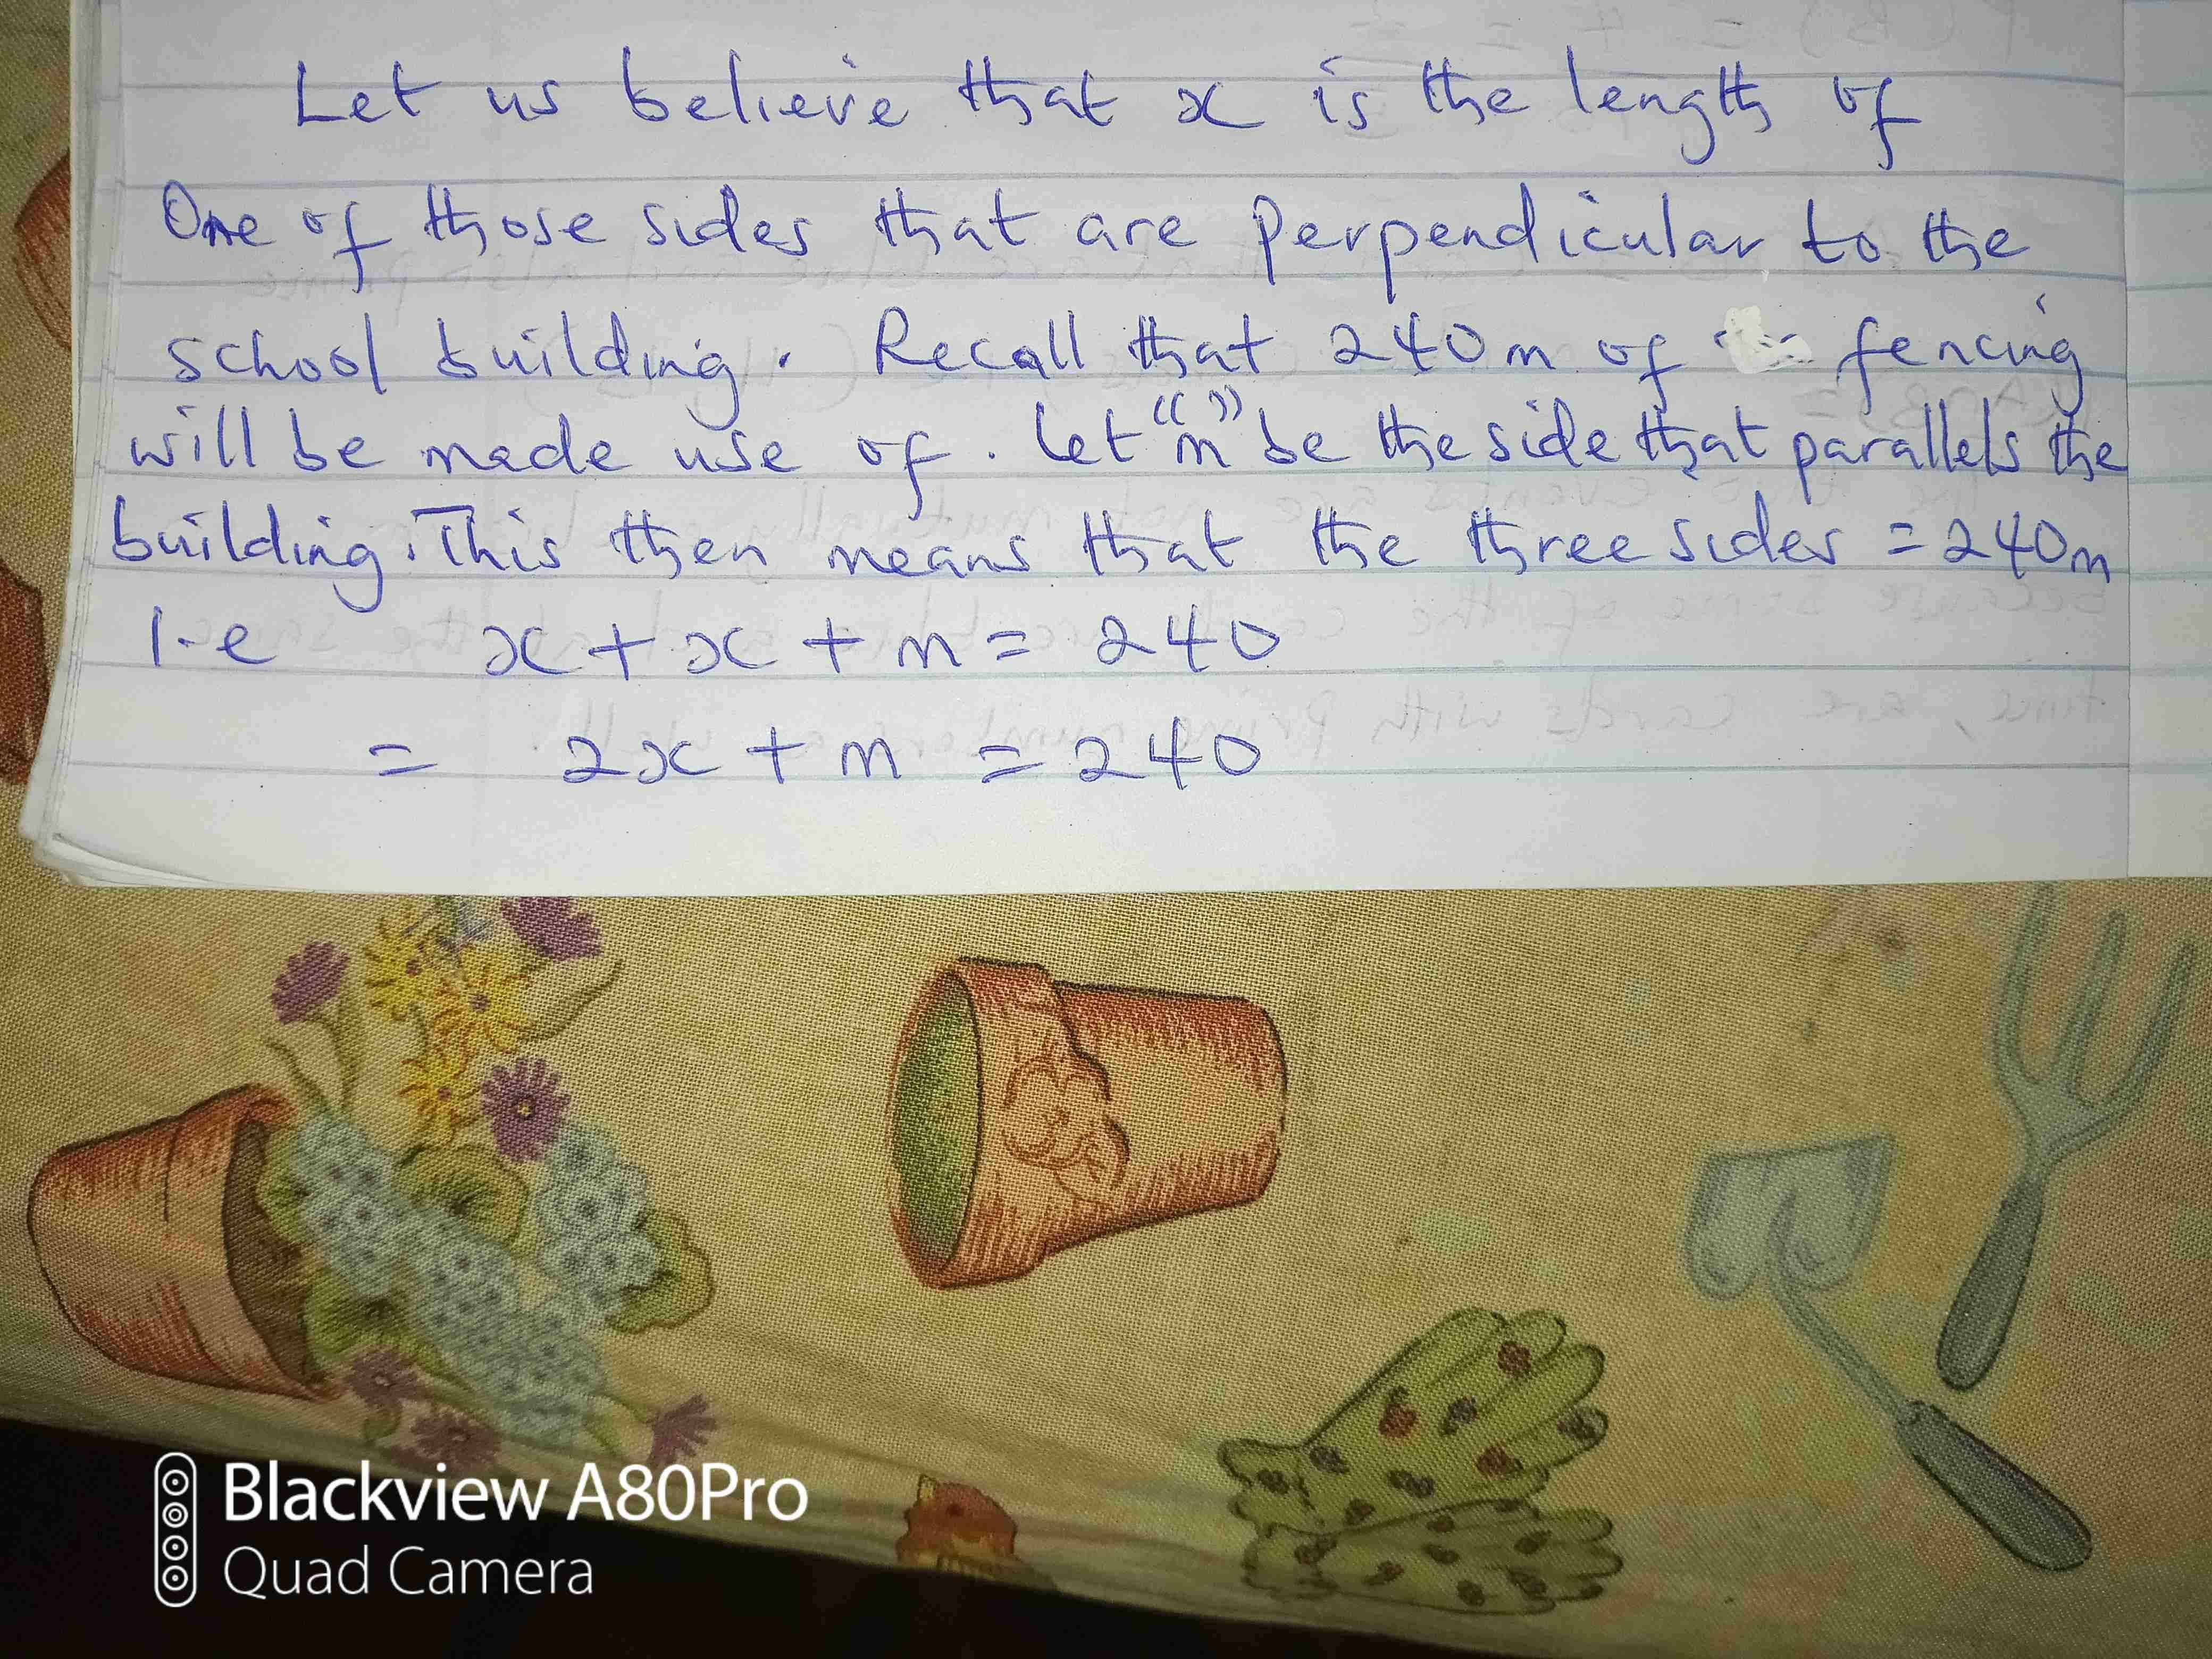 Let us believe that x is the length of
One of those sides that are perpendicular to the
school building. Recall that 240m of fencing
will be made use of. Let "m" be the side that parallels the
building. This then means that the three sides = 240m
I.e x + x + m = 240
= 2x + m = 240
Blackview A80Pro
Quad Camera